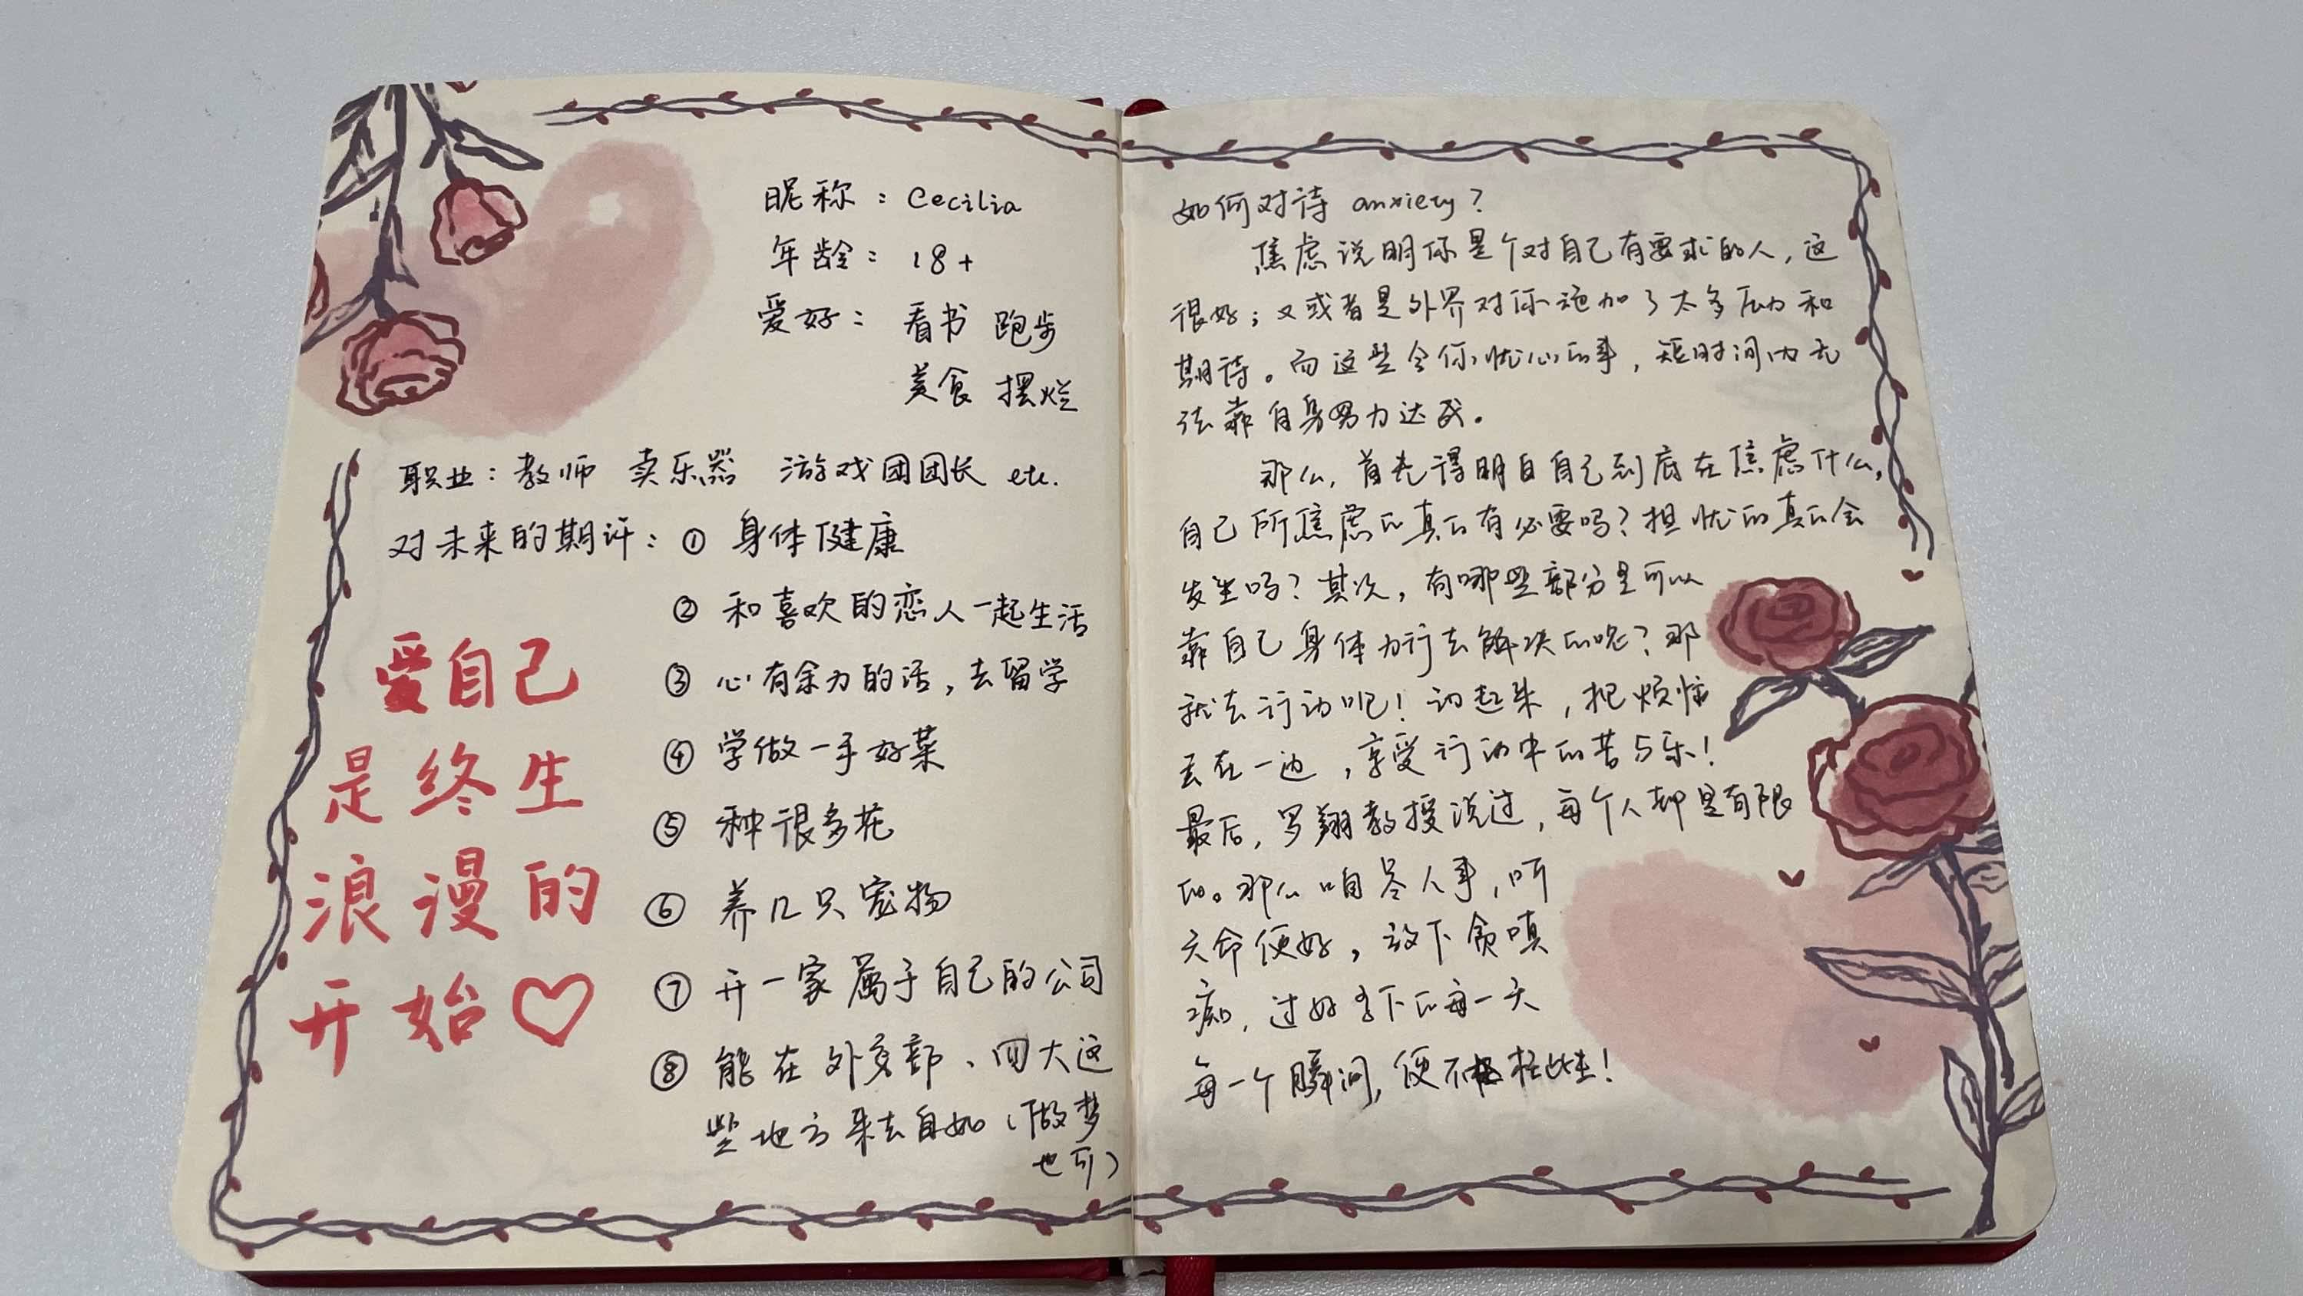 昵称：Cecilia
年龄：18+
爱好：看书 跑步
美食 摆烂
职业：教师 卖乐器 游戏团团长 etc.
对未来的期许：① 身体健康
② 和喜欢的恋人一起生活
③ 心有余力的话，去留学
④ 学做一手好菜
⑤ 种很多花
⑥ 养几只宠物
⑦ 开一家属于自己的公司
⑧ 能在外交部、四大这
些地方来去自如（做梦
也可）
爱自己
是终生
浪漫的
开始♡
如何对待 anxiety？
焦虑说明你是个对自己有要求的人，这
很好；又或者是外界对你施加了太多压力和
期待。而这些令你忧心的事，短时间内无
法靠自身努力达成。
那么，首先得明白自己到底在焦虑什么，
自己所焦虑的真的有必要吗？担忧的真的会
发生吗？其次，有哪些部分是可以
靠自己身体力行去解决的呢？那
就去行动吧！动起来，把烦恼
丢在一边，享受行动中的苦与乐！
最后，罗翔教授说过，每个人都是有限
的。那么咱尽人事，听
天命便好，放下贪嗔
痴，过好当下的每一天
每一个瞬间，便不枉此生！